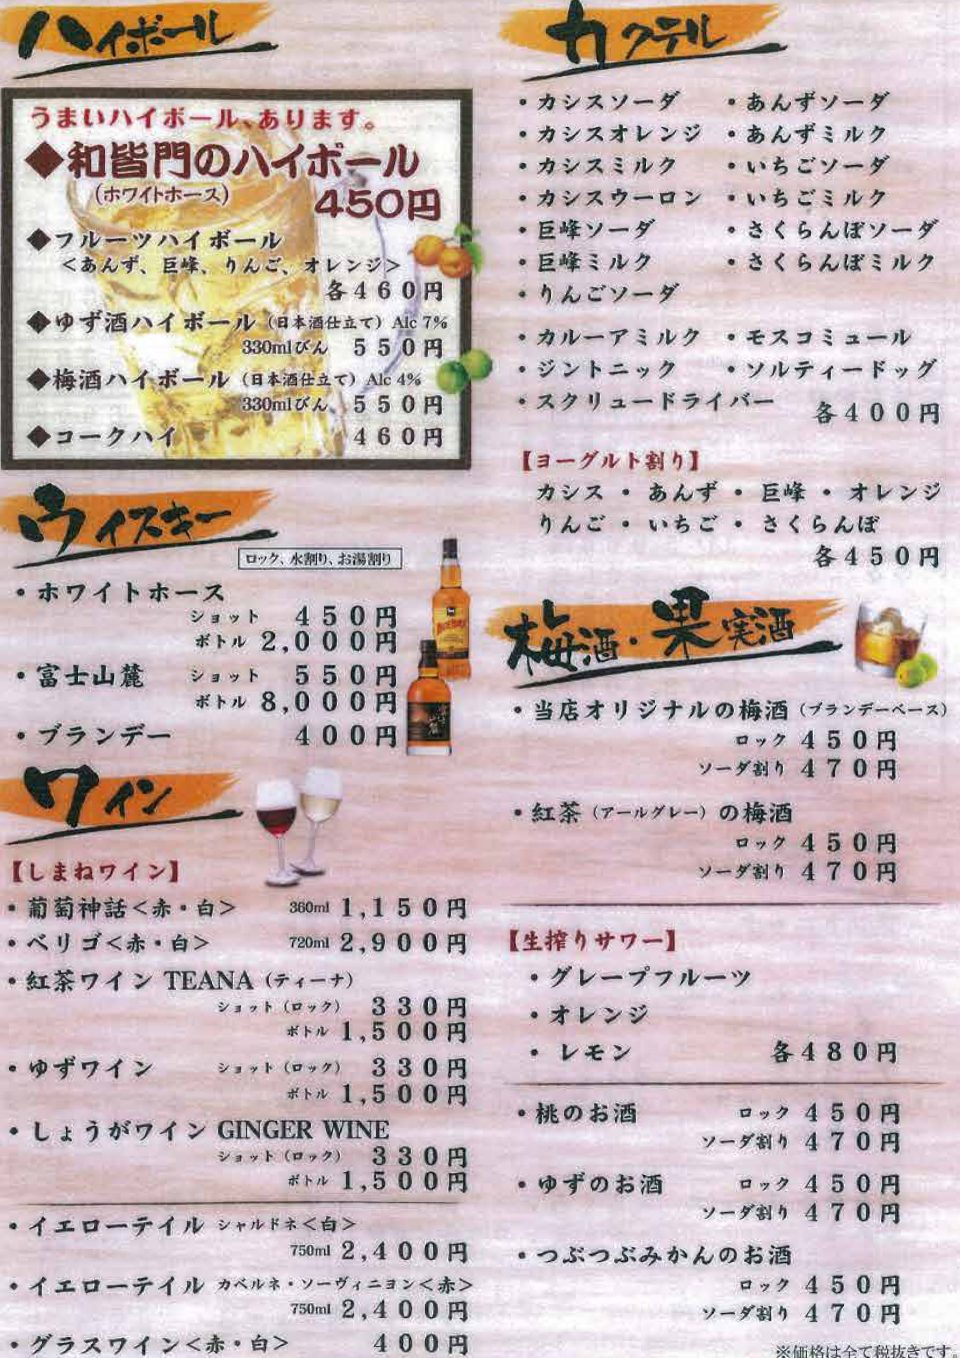 ハイボール
うまいハイボール、あります。
◆和皆門のハイボール
(ホワイトホース)
450円
◆フルーツハイボール
<あんず、巨峰、りんご、オレンジ>
各460円
◆ゆず酒ハイボール (日本酒仕立て) Alc 7%
330mlびん 550円
◆梅酒ハイボール (日本酒仕立て) Alc 4%
330mlびん 550円
◆コークハイ 460円
ウイスキー
ロック、水割り、お湯割り
・ホワイトホース
ショット 450円
ボトル 2,000円
・富士山麓 ショット 550円
ボトル 8,000円
・ブランデー 400円
ワイン
【しまねワイン】
・葡萄神話<赤・白> 360ml 1,150円
・ベリゴ<赤・白> 720ml 2,900円
・紅茶ワイン TEANA (ティーナ)
ショット (ロック) 330円
ボトル 1,500円
・ゆずワイン ショット (ロック) 330円
ボトル 1,500円
・しょうがワイン GINGER WINE
ショット (ロック) 330円
ボトル 1,500円
・イエローテイル シャルドネ<白>
750ml 2,400円
・イエローテイル カベルネ・ソーヴィニヨン<赤>
750ml 2,400円
・グラスワイン<赤・白> 400円
カクテル
・カシスソーダ ・あんずソーダ
・カシスオレンジ ・あんずミルク
・カシスミルク ・いちごソーダ
・カシスウーロン ・いちごミルク
・巨峰ソーダ ・さくらんぼソーダ
・巨峰ミルク ・さくらんぼミルク
・りんごソーダ
・カルーアミルク ・モスコミュール
・ジントニック ・ソルティードッグ
・スクリュードライバー 各400円
【ヨーグルト割り】
カシス・あんず・巨峰・オレンジ
りんご・いちご・さくらんぼ
各450円
梅酒・果実酒
・当店オリジナルの梅酒 (ブランデーベース)
ロック 450円
ソーダ割り 470円
・紅茶 (アールグレー) の梅酒
ロック 450円
ソーダ割り 470円
【生搾りサワー】
・グレープフルーツ
・オレンジ
・レモン 各480円
・桃のお酒 ロック 450円
ソーダ割り 470円
・ゆずのお酒 ロック 450円
ソーダ割り 470円
・つぶつぶみかんのお酒
ロック 450円
ソーダ割り 470円
※価格は全て税抜きです。